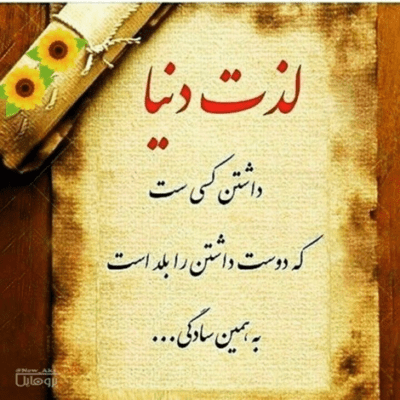 لذت دنیا
داشتن کسی ست
که دوست داشتن را بلد است
به همین سادگی...